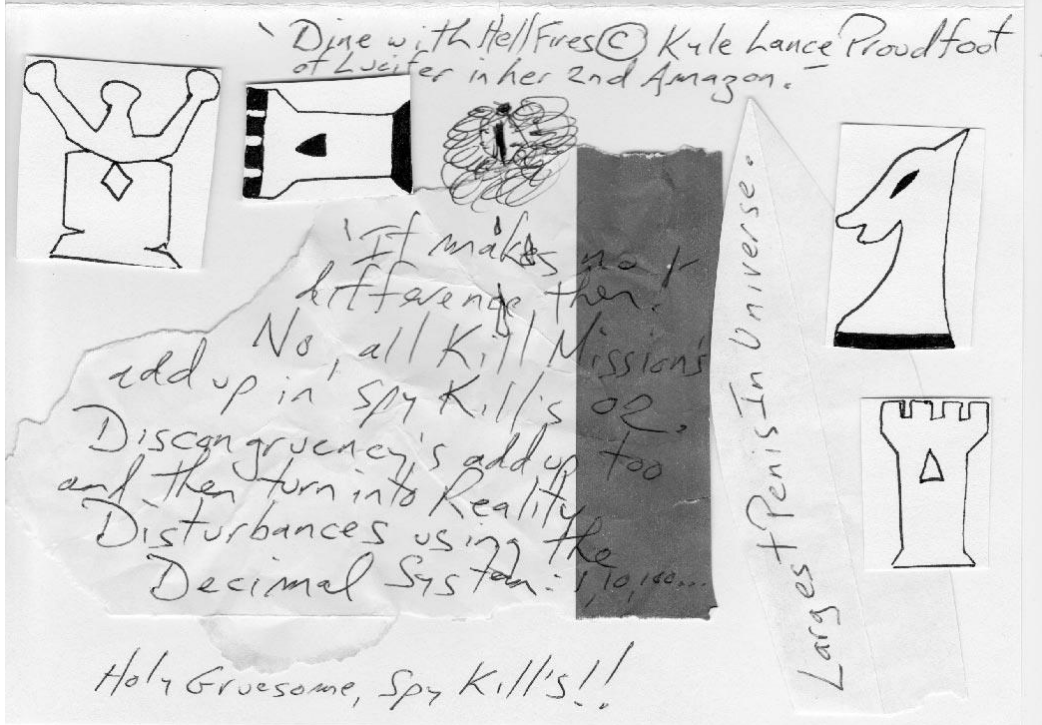 'Dine with HellFires © Kyle Lance Proudfoot
of Lucifer in her 2nd Amazon.'
'It makes no
difference then.
No, all Kill Mission's
add up in 'Spy Kill's 02.
Discongruency's add up too
and then turn into Reality
Disturbances using the
Decimal System: 1,10,100...
Largest Penis In Universe.
Holy Gruesome, Spy Kill's!!